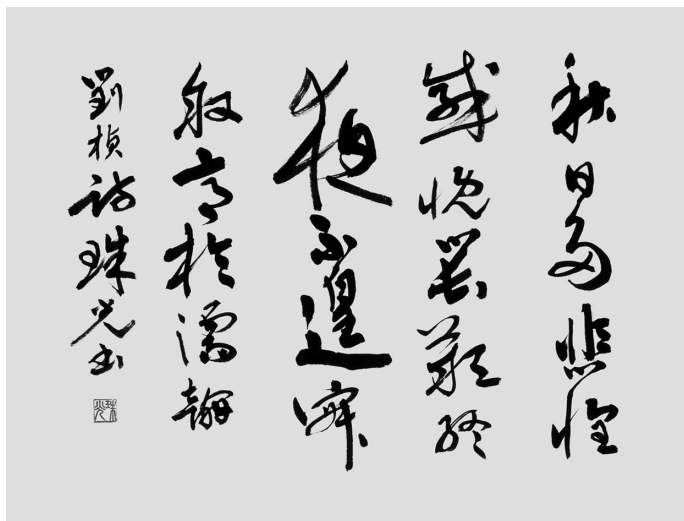 秋日多悲懷
感慨以長歎終
夜不遑寐
敘意於濡翰
劉楨詩珠光書
珠光